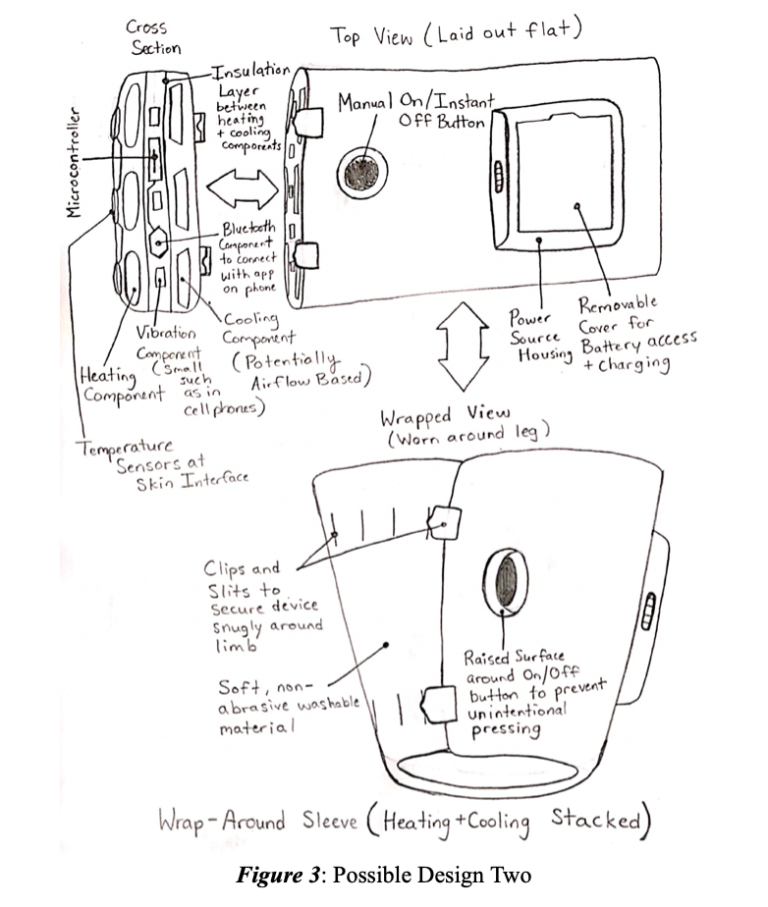 Cross
Section
Top View (Laid out flat)
Insulation
Layer
between
heating
+ cooling
components
Microcontroller
Manual On/Instant
Off Button
Bluetooth
Component
to connect
with app
on phone
Vibration
Component
(Small
such
as in
cell phones)
Cooling
Component
(Potentially
Airflow Based)
Heating
Component
Temperature
Sensors at
Skin Interface
Power
Source
Housing
Removable
Cover for
Battery access
+ charging
Wrapped View
(Worn around leg)
Clips and
Slits to
secure device
snugly around
limb
Soft, non-
abrasive washable
material
Raised Surface
around On/Off
button to prevent
unintentional
pressing
Wrap-Around Sleeve (Heating + Cooling Stacked)
Figure 3: Possible Design Two